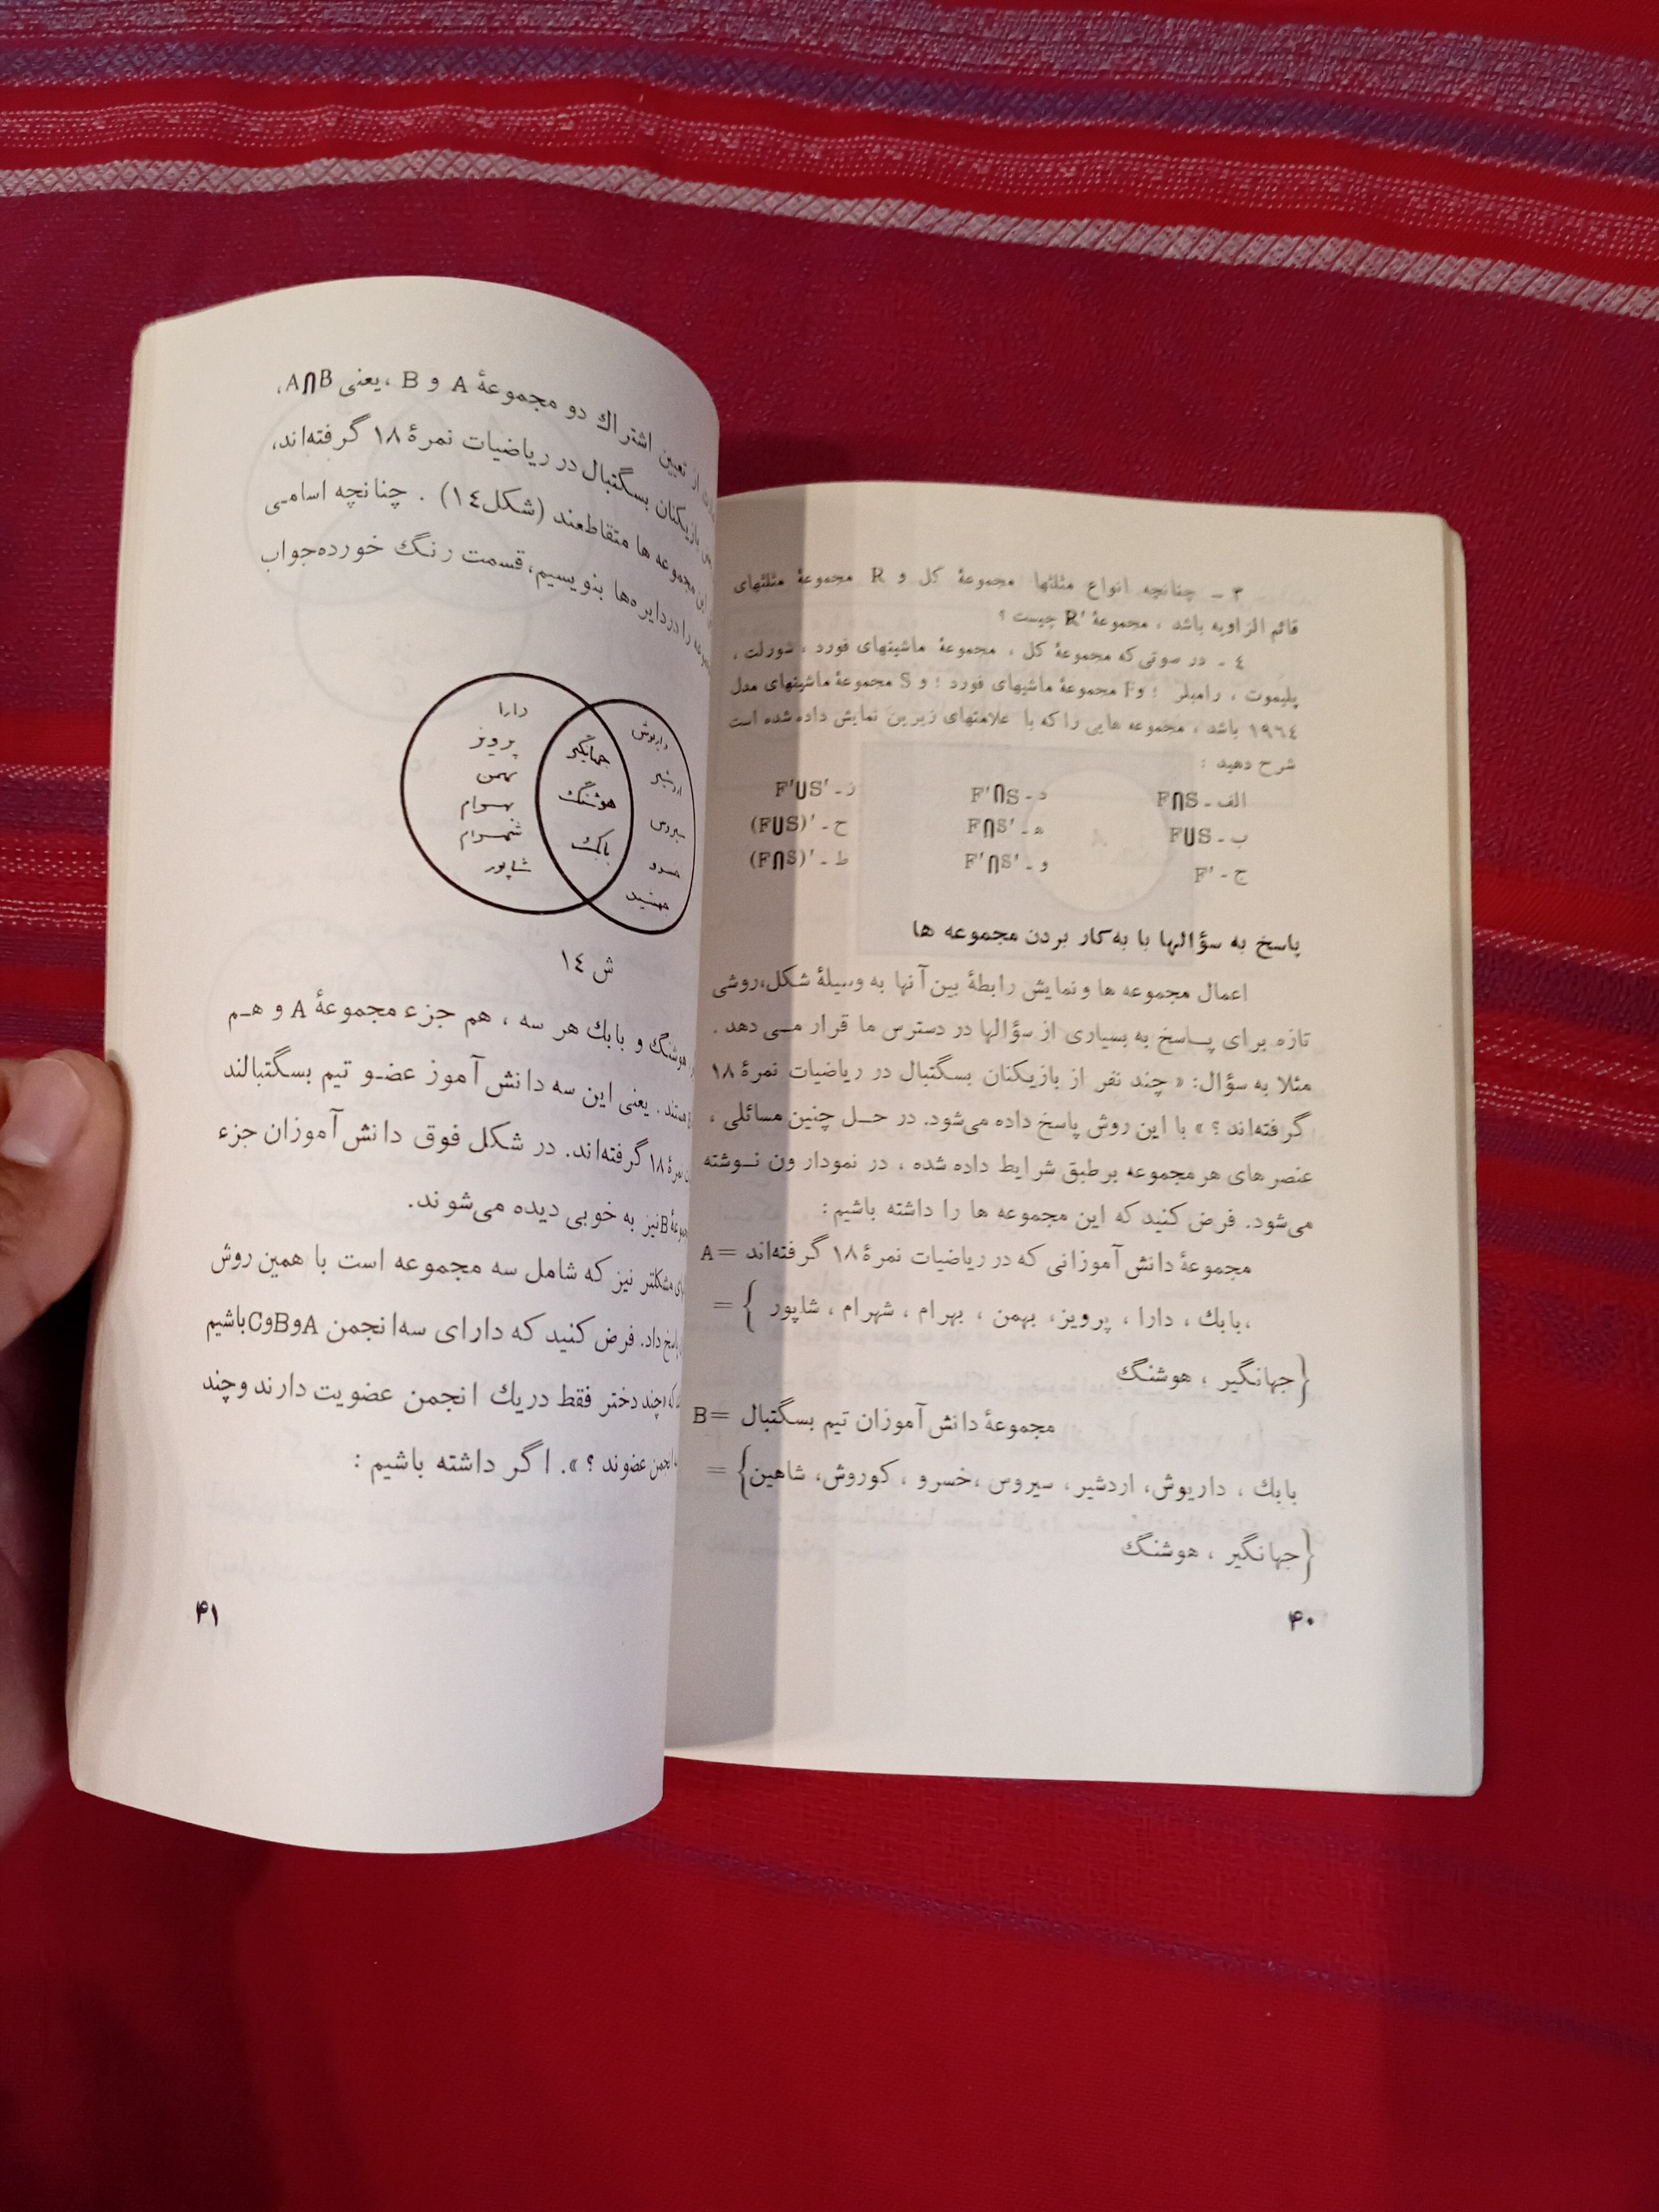 ۳ ـ چنانچه انواع مثلثها مجموعهٔ کل و R مجموعهٔ مثلثهای
قائم الزاویه باشد ، مجموعهٔ R' چیست ؟
٤ ـ در صوتی که مجموعهٔ کل ، مجموعهٔ ماشینهای فورد ، شورلت ،
پلیموت ، رامبلر ؛ وF مجموعهٔ ماشیهای فورد ؛ و S مجموعهٔ ماشینهای مدل
۱۹٦٤ باشد ، مجموعه هایی را که با علامتهای زیرین نمایش داده شده است
شرح دهید :
الف ـ F∩S د ـ F'∩S ز ـ F'∪S'
ب ـ F∪S ه ـ F∩S' ح ـ (F∪S)'
ج ـ F' و ـ F'∩S' ط ـ (F∩S)'
پاسخ به سؤالها با به‌کار بردن مجموعه ها
اعمال مجموعه ها و نمایش رابطهٔ بین آنها به وسیلهٔ شکل،روشی
تازه برای پـاسخ به بسیاری از سؤالها در دسترس ما قرار مـی دهد .
مثلا به سؤال: « چند نفر از بازیکنان بسگتبال در ریاضیات نمرهٔ ۱۸
گرفته‌اند ؟ » با این روش پاسخ داده می‌شود. در حـل چنین مسائلی ،
عنصر های هر مجموعه بر طبق شرایط داده شده ، در نمودار ون نـوشته
می‌شود. فرض کنید که این مجموعه ها را داشته باشیم :
مجموعهٔ دانش آموزانی که در ریاضیات نمرهٔ ۱۸ گرفته‌اند = A
،بابك ، دارا ، پرویز، بهمن ، بهرام ، شهرام ، شاپور } =
{جهانگیر ، هوشنگ
مجموعهٔ دانش آموزان تیم بسگتبال = B
بابك ، داریوش، اردشیر، سیروس ،خسرو ، کوروش، شاهین} =
{جهانگیر ، هوشنگ
۴۰
از تعیین اشتراك دو مجموعهٔ A و B ،یعنی A∩B،
بازیکنان بسگتبال در ریاضیات نمرهٔ ۱۸ گرفته‌اند،
این مجموعه ها متقاطعند (شکل۱٤) . چنانچه اسامـی
را در دایره‌ها بنویسیم، قسمت رنگ خورده‌جواب
دارا
پرویز
بهمن
بهـرام
شهـرام
شاپور
جهانگیر
هوشنگ
بابک
داریوش
اردشیر
سیروس
خسرو
جمشید
ش ۱٤
هوشنگ و بابك هر سه ، هم جزء مجموعهٔ A و هـم
هستند . یعنی این سه دانش آموز عضـو تیم بسگتبالند
نمرهٔ ۱۸ گرفته‌اند. در شکل فوق دانش آموزان جزء
B نیز به خوبی دیده می‌شوند.
مشکلتر نیز که شامل سه مجموعه است با همین روش
پاسخ داد. فرض کنید که دارای سه‌انجمن AوBوC باشیم
که «چند دختر فقط در یك انجمن عضویت دارند و چند
انجمن عضوند ؟ ». اگر داشته باشیم :
۴۱